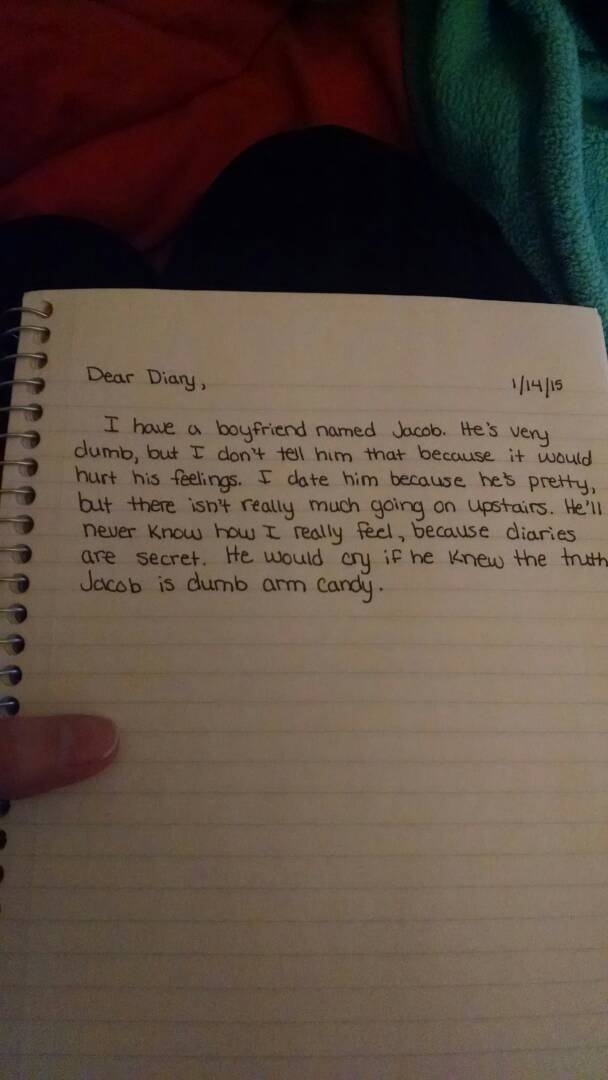 Dear Diary, 1/14/15
I have a boyfriend named Jacob. He's very
dumb, but I don't tell him that because it would
hurt his feelings. I date him because he's pretty,
but there isn't really much going on upstairs. He'll
never know how I really feel, because diaries
are secret. He would cry if he knew the truth
Jacob is dumb arm candy.